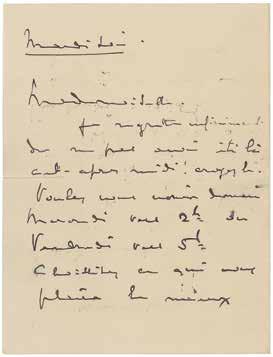 Mardi soir.
Mademoiselle.
Je regrette infiniment
de ne pas avoir été là
cet après midi! croyez-le.
Voulez vous venir demain
Mercredi vers 2h ou
Vendredi vers 5h
Choisissez ce qui vous
plaira le mieux